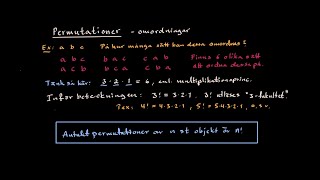 Permutationer - omordningar
Ex: a b c På hur många sätt kan dessa omordnas?
a b c b a c c a b Finns 6 olika sätt
a c b b c a c b a att ordna dessa på.
Tänk så här: 3 · 2 · 1 = 6, enl. multiplikationsprinc.
Inför beteckningen: 3! = 3·2·1. 3! utläses "3-fakultet".
T.ex. 4! = 4·3·2·1, 5! = 5·4·3·2·1, o.s.v.
Antalet permutationer av n st objekt är n!